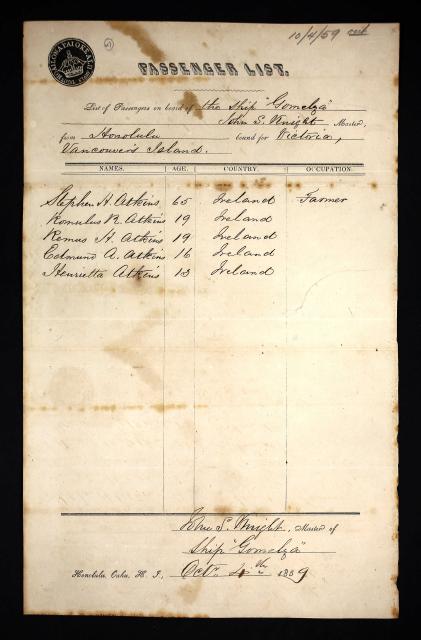 10/4/59
PASSENGER LIST.
List of Passengers on board of the Ship "Gomelza"
John S. Knight Master,
from Honolulu bound for Victoria,
Vancouver's Island.
NAMES. AGE. COUNTRY. OCCUPATION.
Stephen H. Atkins 65 Ireland Farmer
Romulus R. Atkins 19 Ireland
Remus H. Atkins 19 Ireland
Edmund A. Atkins 16 Ireland
Henrietta Atkins 13 Ireland
John S. Knight, Master of
Ship "Gomelza"
Honolulu, Oahu, H. I., Oct. 4th 1859